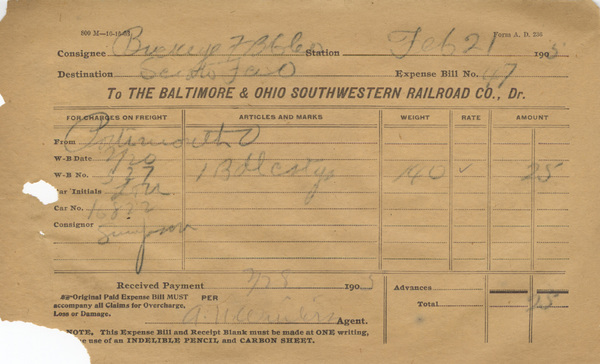 500 M—10-10-03. Form A. D. 236
Consignee Buckeye F B Station Feb 21 1905
Destination Scioto O Expense Bill No. 47
To THE BALTIMORE & OHIO SOUTHWESTERN RAILROAD CO., Dr.
FOR CHARGES ON FREIGHT ARTICLES AND MARKS WEIGHT RATE AMOUNT
From Portsmouth O
W-B Date 2/20
W-B No. 527 1 Bdl 140 ✓ 25
Car Initials
Car No. 16822
Consignor Simpson
Received Payment 1905 Advances
Original Paid Expense Bill MUST PER
accompany all Claims for Overcharge, Total 25
Loss or Damage. Agent.
NOTE. This Expense Bill and Receipt Blank must be made at ONE writing,
use of an INDELIBLE PENCIL and CARBON SHEET.